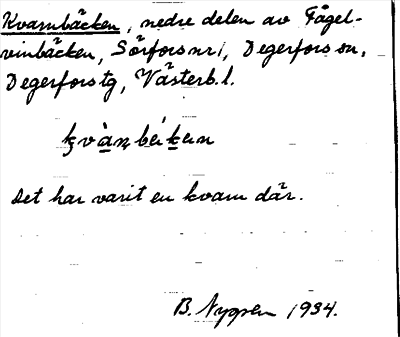 Kvarnbäcken, nedre delen av Fågel-
vinbäcken, Sörfors nr 1, Degerfors sn,
Degerfors tg, Västerb. l.
Det har varit en kvarn där.
B. Nygren 1934.